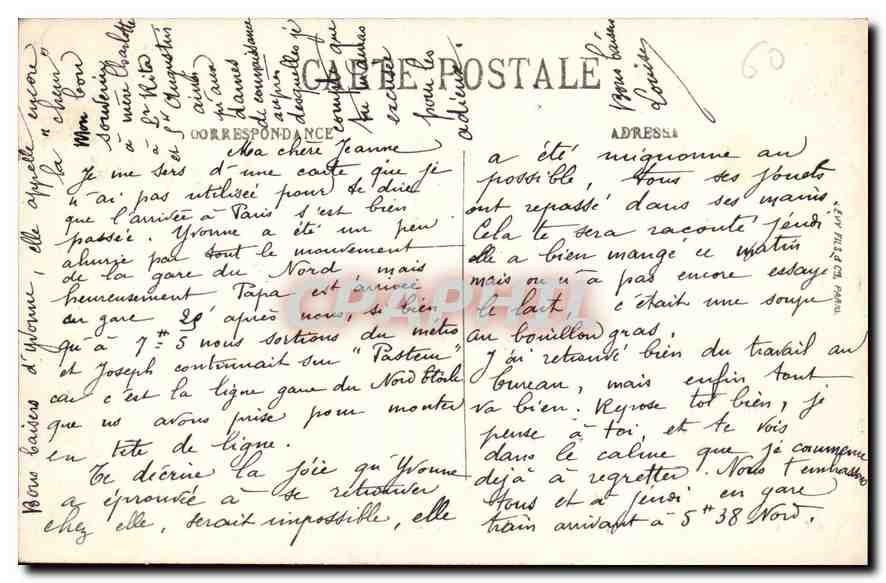 CARTE POSTALE
CORRESPONDANCE
ADRESSE
60
Ma chère Jeanne
Je me sers d'une carte que je
n'ai pas utilisée pour te dire
que l'arrivée à Paris s'est bien
passée. Yvonne a été un peu
ahurie par tout le mouvement
de la gare du Nord mais
heureusement Papa est arrivé
en gare 2s après nous, si bien
qu'à 7H 5 nous sortions du métro
et Joseph continuait sur "Pasteur"
car c'est la ligne gare du Nord Etoile
que ns avons prise pour monter
en tête de ligne.
Te décrire la joie qu'Yvonne
a éprouvée à se retrouver
chez elle, serait impossible, elle
a été mignonne au
possible, tous ses jouets
ont repassé dans ses mains
Cela te sera raconté jeudi.
elle a bien mangé ce matin
mais on n'a pas encore essayé
le lait, c'était une soupe
au bouillon gras.
J'ai retrouvé bien du travail au
bureau, mais enfin tout
va bien. Repose toi bien, je
pense à toi, et te vois
dans le calme que je commence
déjà à regretter. Nous t'embrassons
tous et à jeudi en gare
train arrivant à 5H 38 Nord.
Bons baisers d'Yvonne, elle appelle encore
la "cheur"
Mon bon
souvenir
à mère Charlotte
à Sr Rita
et Sr Augustin
ainsi
qu'aux
dames
de connaissance
auprès
desquelles je
compte que
tu m'auras
excusée
pour les
adieux.
Bons baisers
Louise
LEVY FILS & Cie PARIS
CPAPHIL